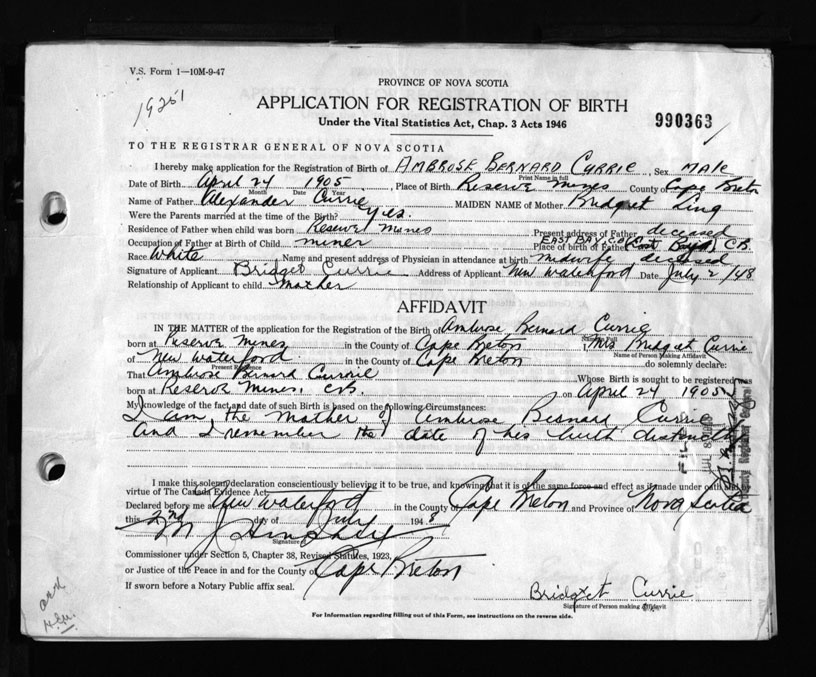 V.S. Form 1—10M-9-47
PROVINCE OF NOVA SCOTIA
19251
APPLICATION FOR REGISTRATION OF BIRTH
990363
Under the Vital Statistics Act, Chap. 3 Acts 1946
TO THE REGISTRAR GENERAL OF NOVA SCOTIA
I hereby make application for the Registration of Birth of AMBROSE BERNARD CURRIE, Sex MALE
Print Name in full
Date of Birth April 24 1905, Place of Birth Reserve Mines County of Cape Breton
Month Date Year
Name of Father Alexander Currie MAIDEN NAME of Mother Bridget Ling
Were the Parents married at the time of the Birth? Yes.
Residence of Father when child was born Reserve Mines Present address of Father deceased
Occupation of Father at Birth of Child miner Place of birth of Father EAST BAY C.B. (East Bay) C.B.
Race White Name and present address of Physician in attendance at birth midwife, deceased
Signature of Applicant Bridget Currie Address of Applicant New Waterford Date July 2/48
Relationship of Applicant to child mother
AFFIDAVIT
IN THE MATTER of the application for the Registration of the Birth of Ambrose Bernard Currie
Full Name
born at Reserve Mines in the County of Cape Breton I, Mrs Bridget Currie
Name of Person Making Affidavit
of New Waterford in the County of Cape Breton do solemnly declare:
Present Residence
That Ambrose Bernard Currie Whose Birth is sought to be registered was
born at Reserve Mines, C.B. on April 24 1905
My knowledge of the fact and date of such Birth is based on the following Circumstances:
I am the mother of Ambrose Bernard Currie
and I remember the date of his birth distinctly
I make this solemn declaration conscientiously believing it to be true, and knowing that it is of the same force and effect as if made under oath and by
virtue of The Canada Evidence Act.
Declared before me at New Waterford in the County of Cape Breton and Province of Nova Scotia
this 2nd day of July 1948
M J
Signature
Commissioner under Section 5, Chapter 38, Revised Statutes, 1923,
or Justice of the Peace in and for the County of Cape Breton
If sworn before a Notary Public affix seal.
Bridget Currie
Signature of Person making Affidavit
For Information regarding filling out of this Form, see instructions on the reverse side.